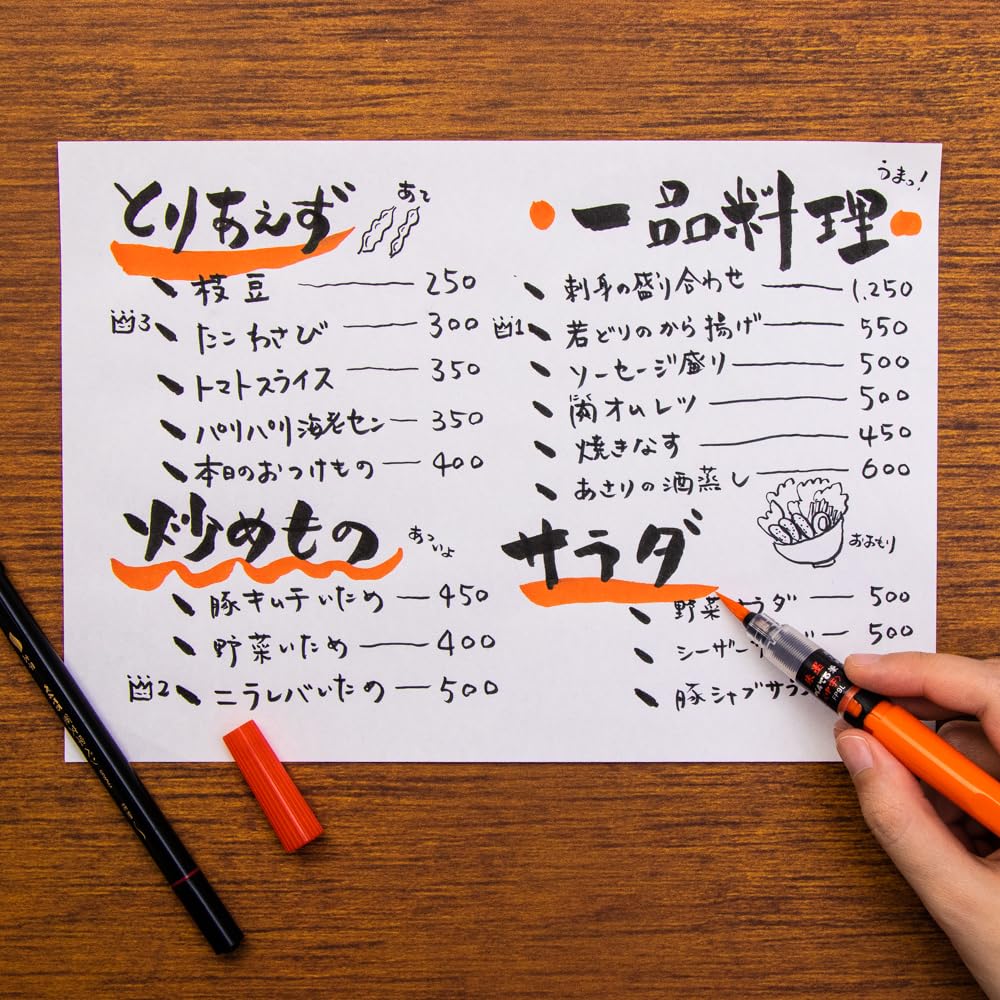 とりあえず
あて
枝豆 250
3 たこわさび 300
トマトスライス 350
パリパリ海老セン 350
本日のおつけもの 400
炒めもの
あついよ
豚キムチいため 450
野菜いため 400
2 ニラレバいため 500
一品料理
うまっ!
刺身の盛り合わせ 1,250
1 若どりのから揚げ 550
ソーセージ盛り 500
オムレツ 500
焼きなす 450
あさりの酒蒸し 600
サラダ
おおもり
野菜サラダ 500
シーザー 500
豚シャブサラ